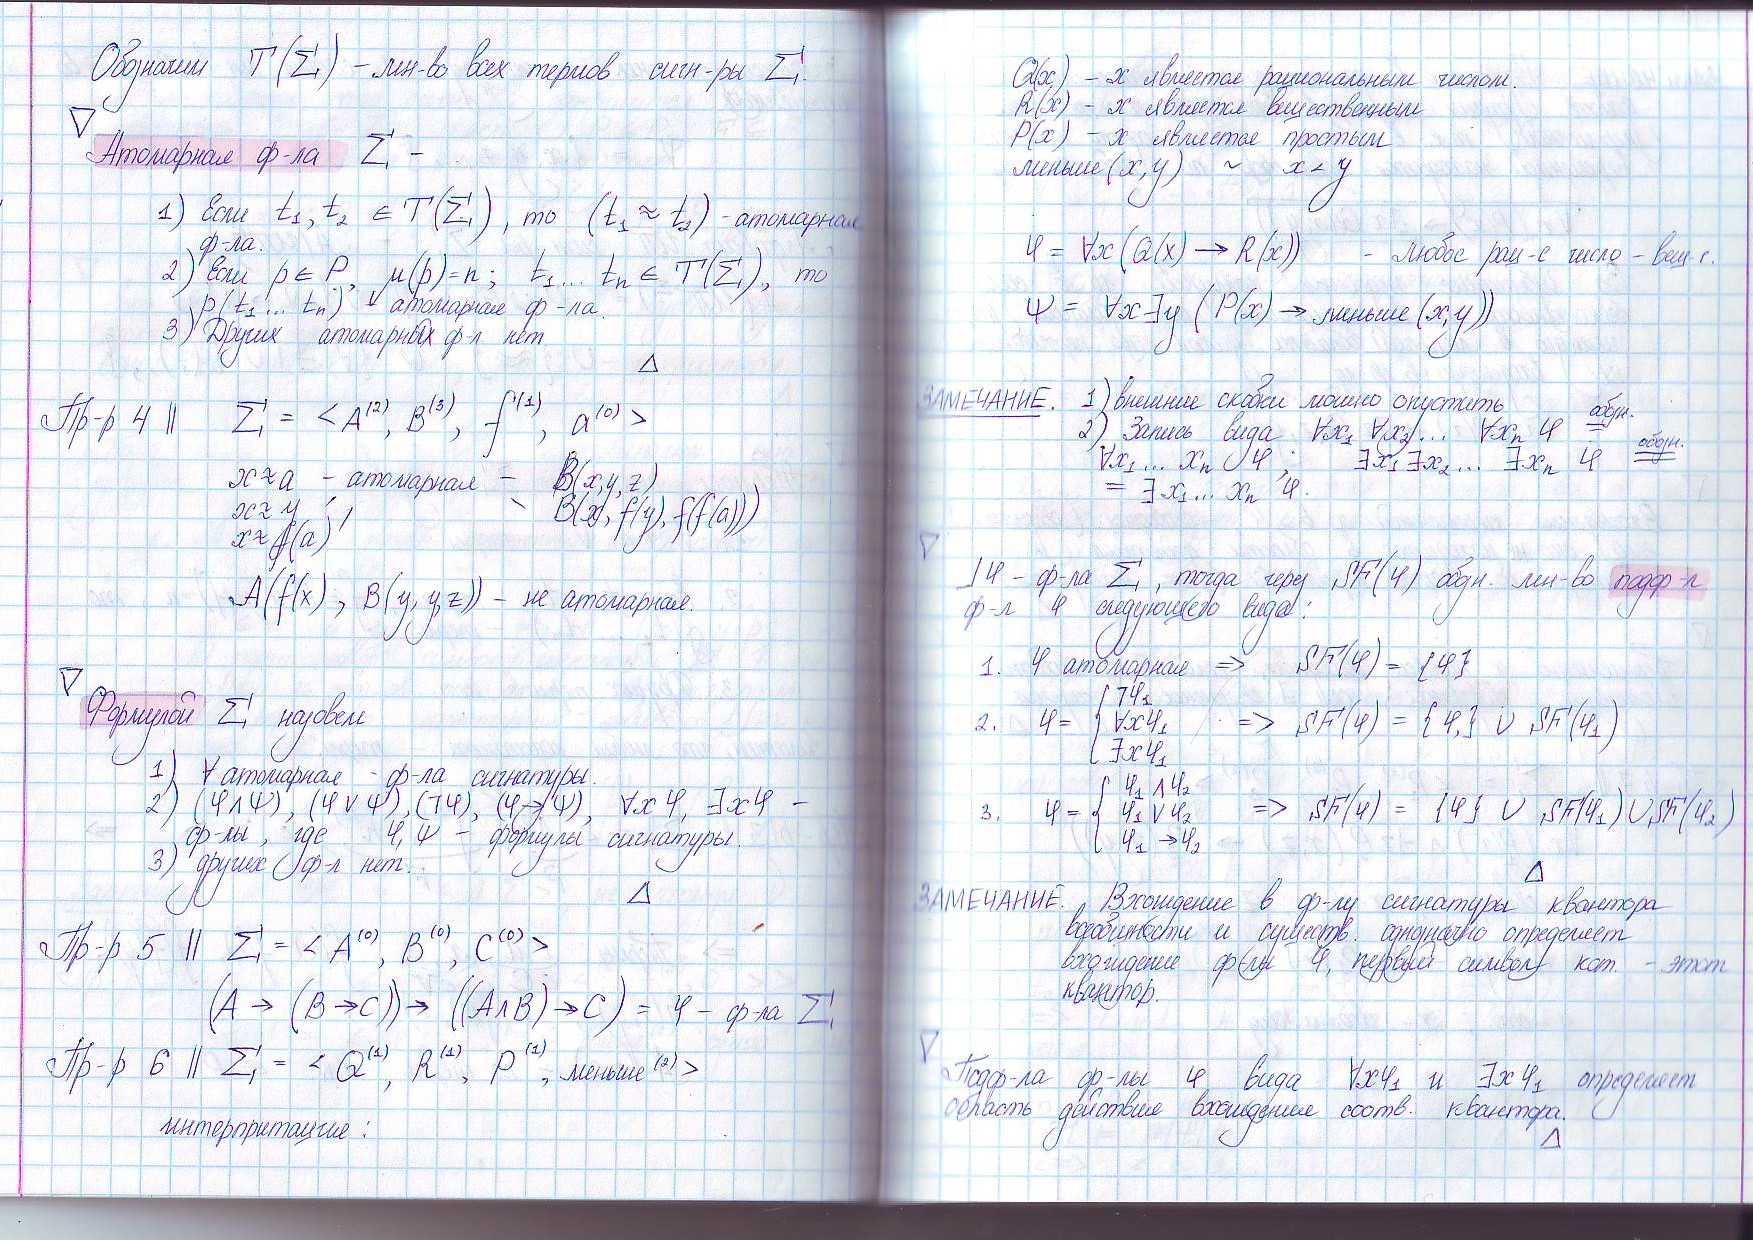 Обозначим T(Σ) – мн-во всех термов сигн-ры Σ.
▽
Атомарная ф-ла Σ –
1) Если t₁, t₂ ∈ T(Σ), то (t₁ ≈ t₂) – атомарная
ф-ла.
2) Если p ∈ P, μ(p)=n; t₁... tₙ ∈ T(Σ), то
p(t₁... tₙ) – атомарная ф-ла.
3) Других атомарных ф-л нет.
△
Пр-р 4 || Σ = < A⁽²⁾, B⁽³⁾, f⁽¹⁾, a⁽⁰⁾ >
x≈a – атомарная – B(x,y,z)
x≈y B(x, f(y), f(f(a)))
x≈f(a)
A(f(x), B(y,y,z)) – не атомарная.
▽
Формулой Σ назовем
1) ∀ атомарная ф-ла сигнатуры.
2) (φ∧ψ), (φ∨ψ), (¬φ), (φ→ψ), ∀xφ, ∃xφ –
ф-лы, где φ,ψ – формулы сигнатуры.
3) других ф-л нет.
△
Пр-р 5 || Σ = < A⁽⁰⁾, B⁽⁰⁾, C⁽⁰⁾ >
(A → (B→C)) → ((A∧B)→C) = φ – ф-ла Σ
Пр-р 6 || Σ = < Q⁽¹⁾, R⁽¹⁾, P⁽¹⁾, меньше⁽²⁾ >
интерпритация:
Q(x) – x является рациональным числом.
R(x) – x является вещественным
P(x) – x является простым
меньше(x,y) ~ x<y
φ = ∀x(Q(x) → R(x)) – любое рац-е число – вещ-е.
ψ = ∀x∃y (P(x) → меньше(x,y))
ЗАМЕЧАНИЕ. 1) внешние скобки можно опустить
2) Запись вида ∀x₁ ∀x₂... ∀xₙ φ обозн. =
∀x₁... xₙ φ; ∃x₁∃x₂... ∃xₙ φ обозн. =
= ∃x₁... xₙ φ.
▽
⅃φ – ф-ла Σ, тогда через SF(φ) обозн. мн-во подф-л
ф-л φ следующего вида:
1. φ атомарная => SF(φ) = {φ}
2. φ = { ¬φ₁ ∀xφ₁ ∃xφ₁ => SF(φ) = {φ} ∪ SF(φ₁)
3. φ = { φ₁∧φ₂ φ₁∨φ₂ φ₁→φ₂ => SF(φ) = {φ} ∪ SF(φ₁) ∪ SF(φ₂)
△
ЗАМЕЧАНИЕ. Вхождение в ф-лу сигнатуры квантора
всеобщности и существ. однозначно определяет
вхождение ф-лы φ, первый символ кот. – этот
квантор.
▽
Подф-ла ф-лы φ вида ∀xφ₁ и ∃xφ₁ определяет
область действия вхождения соотв. квантора.
△